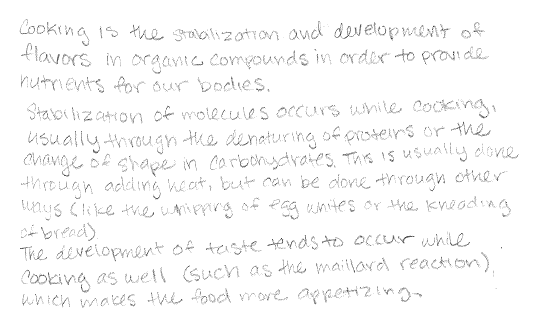 Cooking is the stabalization and development of
flavors in organic compounds in order to provide
nutrients for our bodies.
Stabilization of molecules occurs while cooking,
usually through the denaturing of proteins or the
change of shape in carbohydrates. This is usually done
through adding heat, but can be done through other
ways (like the whipping of egg whites or the kneading
of bread)
The development of taste tends to occur while
cooking as well (such as the maillard reaction),
which makes the food more appetizing.